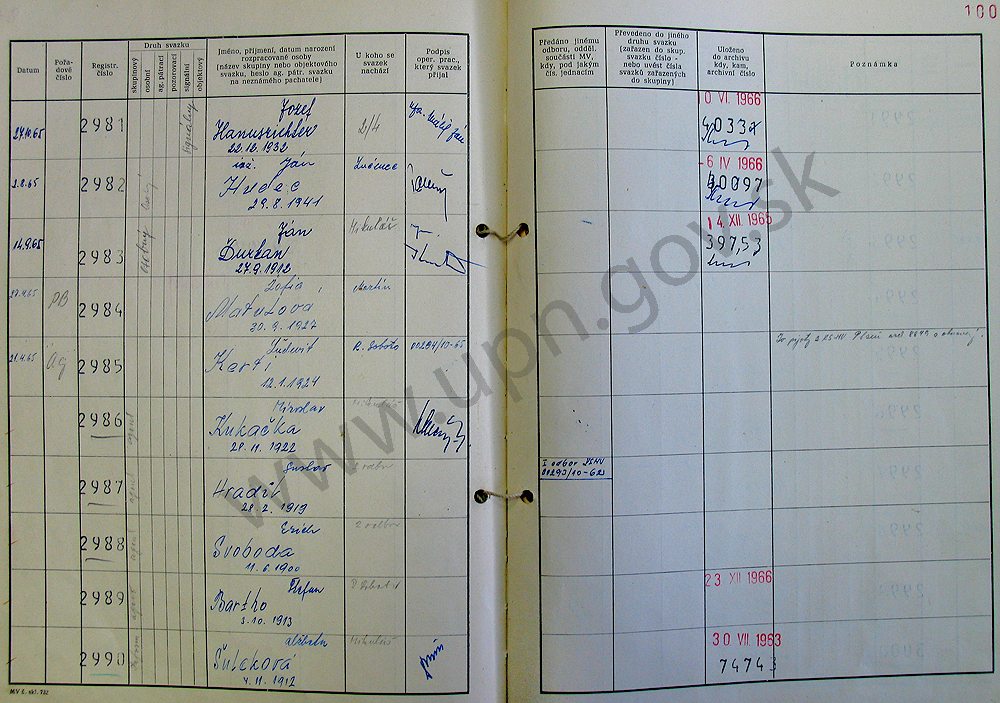 100
Datum
Pořadové číslo
Registr. číslo
Druh svazku
skupinový
osobní
ag. pátrací
pozorovací
signální
objektový
Jméno, příjmení, datum narození
rozpracované osoby
(název skupiny nebo objektového
svazku, heslo ag. pátr. svazku
na neznámého pachatele)
U koho se
svazek
nachází
Podpis
oper. prac.,
který svazek
přijal
Předáno jinému
odboru, odděl.
součásti MV,
kdy, pod jakým
čís. jednacím
Převedeno do jiného
druhu svazku
(zařazen do skup.
svazku číslo -
nebo uvést čísla
svazků zařazených
do skupiny)
Uloženo
do archivu
kdy, kam,
archivní číslo
Poznámka
2981
Jozef
Hanusrichter
22.12.1932
2/4
10 VI. 1966
2.8.65
2982
ing. Ján
Hudec
29.8.1941
Lučenec
-6 IV 1966
40097
14.9.65
2983
osobný
Ján
Ďurkan
27.9.1912
Mikuláš
14. XII. 1965
39753
PB
2984
Žofia
Matušova
30.9.1927
Martin
Ag
2985
Ľudevít
Karti
12.1.1924
R. Sobota
00294/10-65
2986
agent
Miroslav
Kukačka
28.11.1922
Mikuláš
2987
agent
Gustav
Hradil
28.2.1919
2 odbor
I odbor KSMV
00293/10-62
2988
agent
Erich
Svoboda
11.6.1900
2 odbor
2989
agent
Štefan
Bartho
3.10.1913
23 XII 1966
2990
Alžbeta
Šulcková
4.11.1912
Mikuláš
30 VII 1963
74743
MV č. skl. 732
www.upn.gov.sk